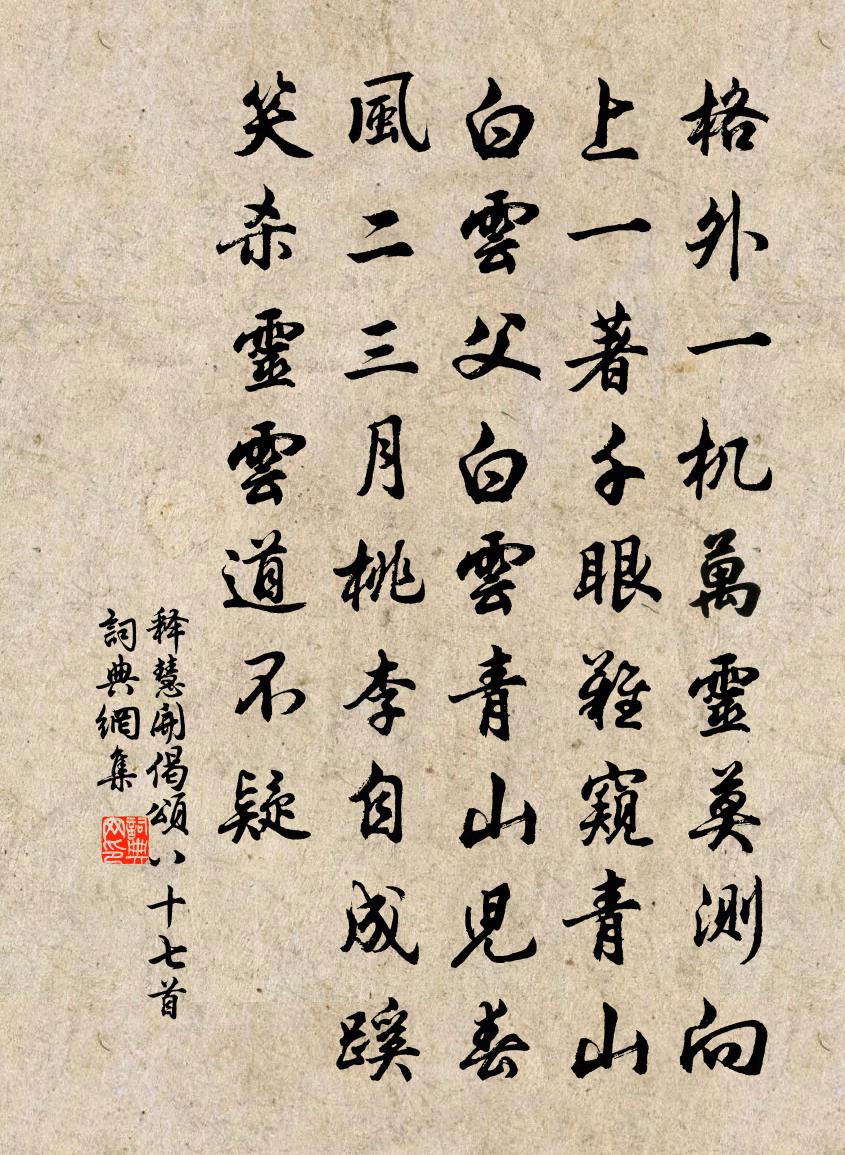 格外一机萬靈莫測向
上一著千眼難窺青山
白雲父白雲青山兒春
風二三月桃李自成蹊
笑杀靈雲道不疑
释慧開偈頌八十七首
詞典網集
詞典網印